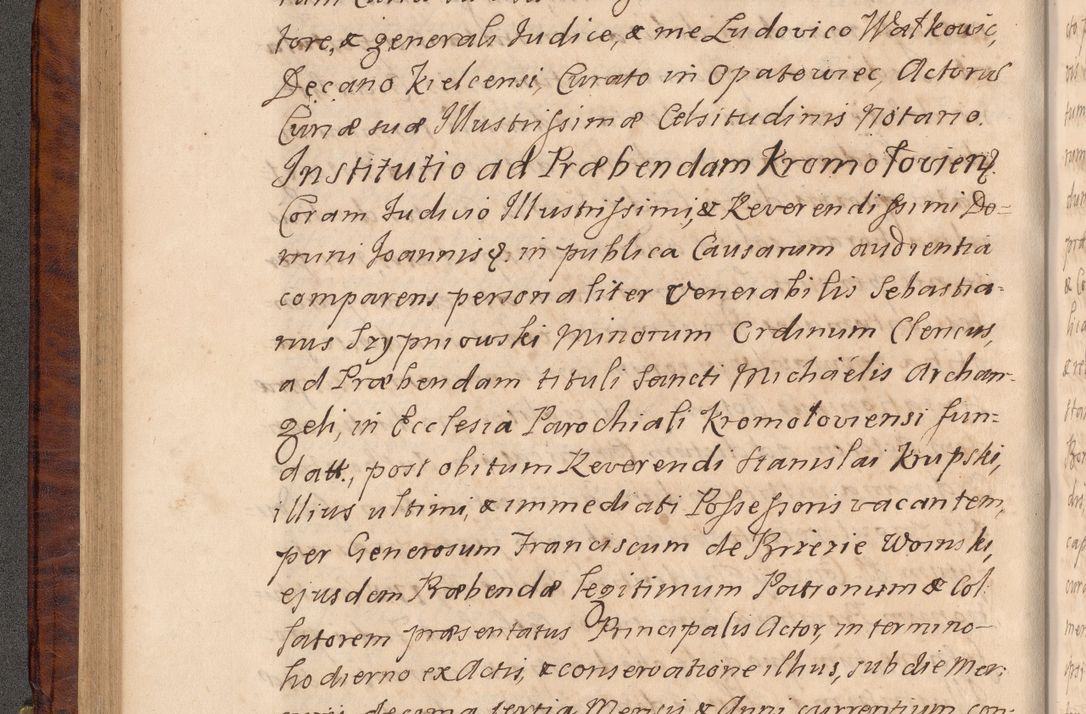 tore, & generali Judice, & me Ludovico Watkowic,
Decano Kielcensi, Curato in Opatowiec, Actorus
Curiæ suæ Illustrissimæ Celsitudinis Notario.
Institutio ad Præbendam Kromołovien:
Coram Judicio Illustrissimi, & Reverendissimi Do=
mini Joannis &. in publica Causarum audientia
comparens personaliter Venerabilis Sebastia=
nus Szypniowski Minorum Ordinum Clericus,
ad Præbendam tituli Sancti Michaélis Archan=
geli, in Ecclesia Parochiali Kromołoviensi fun=
datt., post obitum Reverendi Stanislai Krupski,
illius ultimi, & immediati Possessoris vacantem,
per Generosum Franciscum de Brzezie Woinski,
ejusdem Præbendæ legitimum Patronum & Col
latorem præsentatus Principalis Actor, in termino
hodierno ex Actis, & conservatione illius, sub die Men:
decima tertia Mensis & Anni currentium con